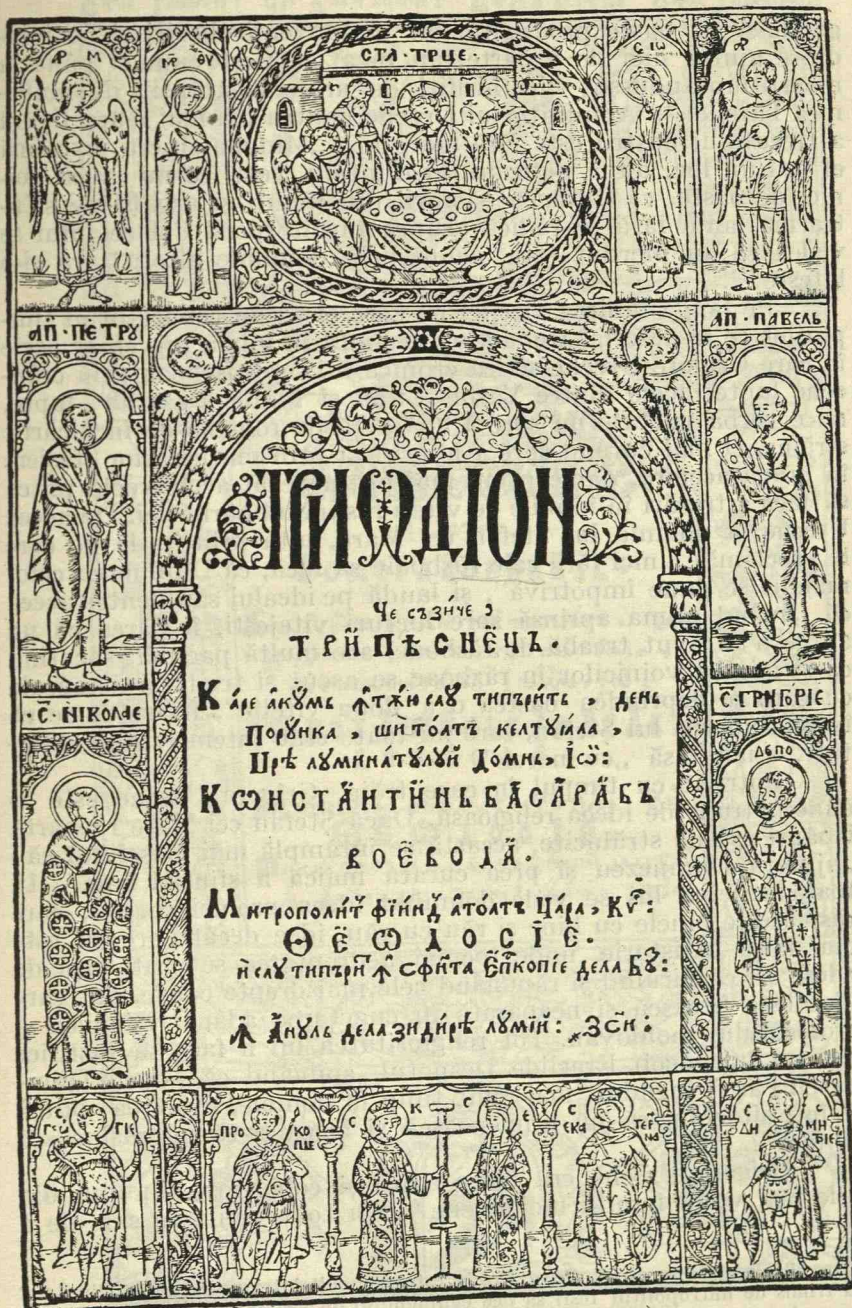 АР М
МР ѲУ
СТА · ТРЦЕ ·
С ІѠ
АР Г
АП · ПЕТРУ
АП · ПАВЕЛЬ
ТРИѠДІОН
Че съзиче ;
ТРИПѢСНЕЦЪ .
Каре акумь ꙟтѫю сау типърить , день
Порунка , шитоатъ келтуꙗла ,
Прѣ луминатулуй Домнь , Іѡ :
КѠНСТАНТИНЬ БАСАРАБЪ
ВОЕВОДА .
Митрополит фїинд атоатъ Цара , Кѵр :
ѲЕѠДОСІЕ .
ши сау типърит ꙟ сфѫнта Епкопїе дела Бꙋ :
ꙟ Анꙋль дела зидирѣ лумїи : ҂ЗСИ :
· С · НИКОЛАЕ
С · ГРИГОРІЕ
ДЕПО
С ГЕѠ ГІЕ
С ПРО КОПІЕ
С К
С Е
С ЕКА ТЕРИНА
С ДИ МИТРІЕ